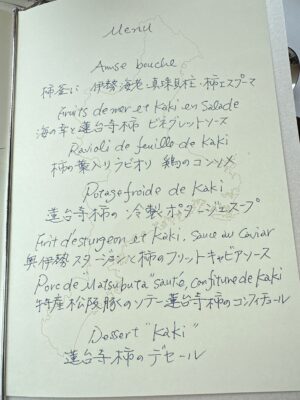 Menu
Amuse bouche
柿釜に 伊勢海老・真珠貝柱・柿エスプーマ
Fruits de mer et Kaki en Salade
海の幸と蓮台寺柿 ビネグレットソース
Ravioli de feuille de Kaki
柿の葉入りラビオリ 鶏のコンソメ
Potage froide de Kaki
蓮台寺柿の 冷製 ポタージュスープ
Frit d'sturgeon et Kaki, Sauce au Caviar
奥伊勢スタージョンと柿のフリットキャビアソース
Porc de "Matsubuta" sauté, confiture de Kaki
特産松阪豚のソテー蓮台寺柿のコンフィチュール
Dessert "Kaki"
蓮台寺柿のデセール